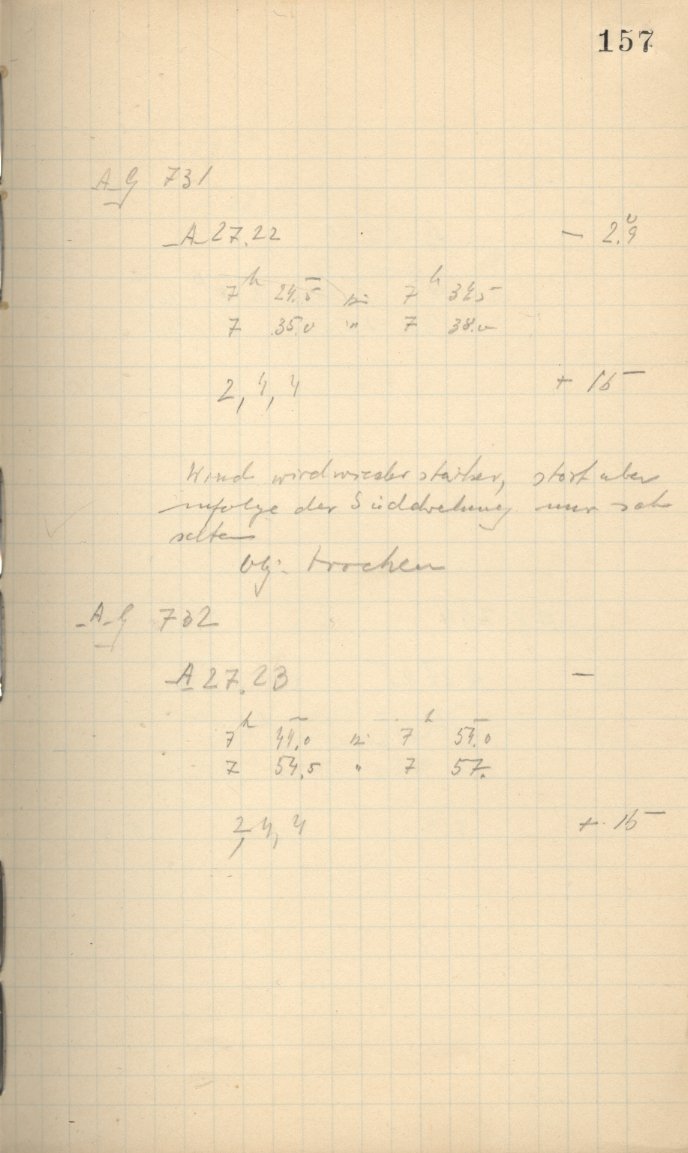 157
AG 731
A 27.22 — 2.9
7h 24.5 bis 7h 34.5
7 35.0 " 7 38.0
2, 4, 4 + 15
Wind wird wieder stärker, stört aber
infolge der Süddrehung nur sehr
selten
Obj. trocken
AG 732
A 27.23 —
7h 44.0 bis 7h 54.0
7 54.5 " 7 57.
2, 4, 4 + 15